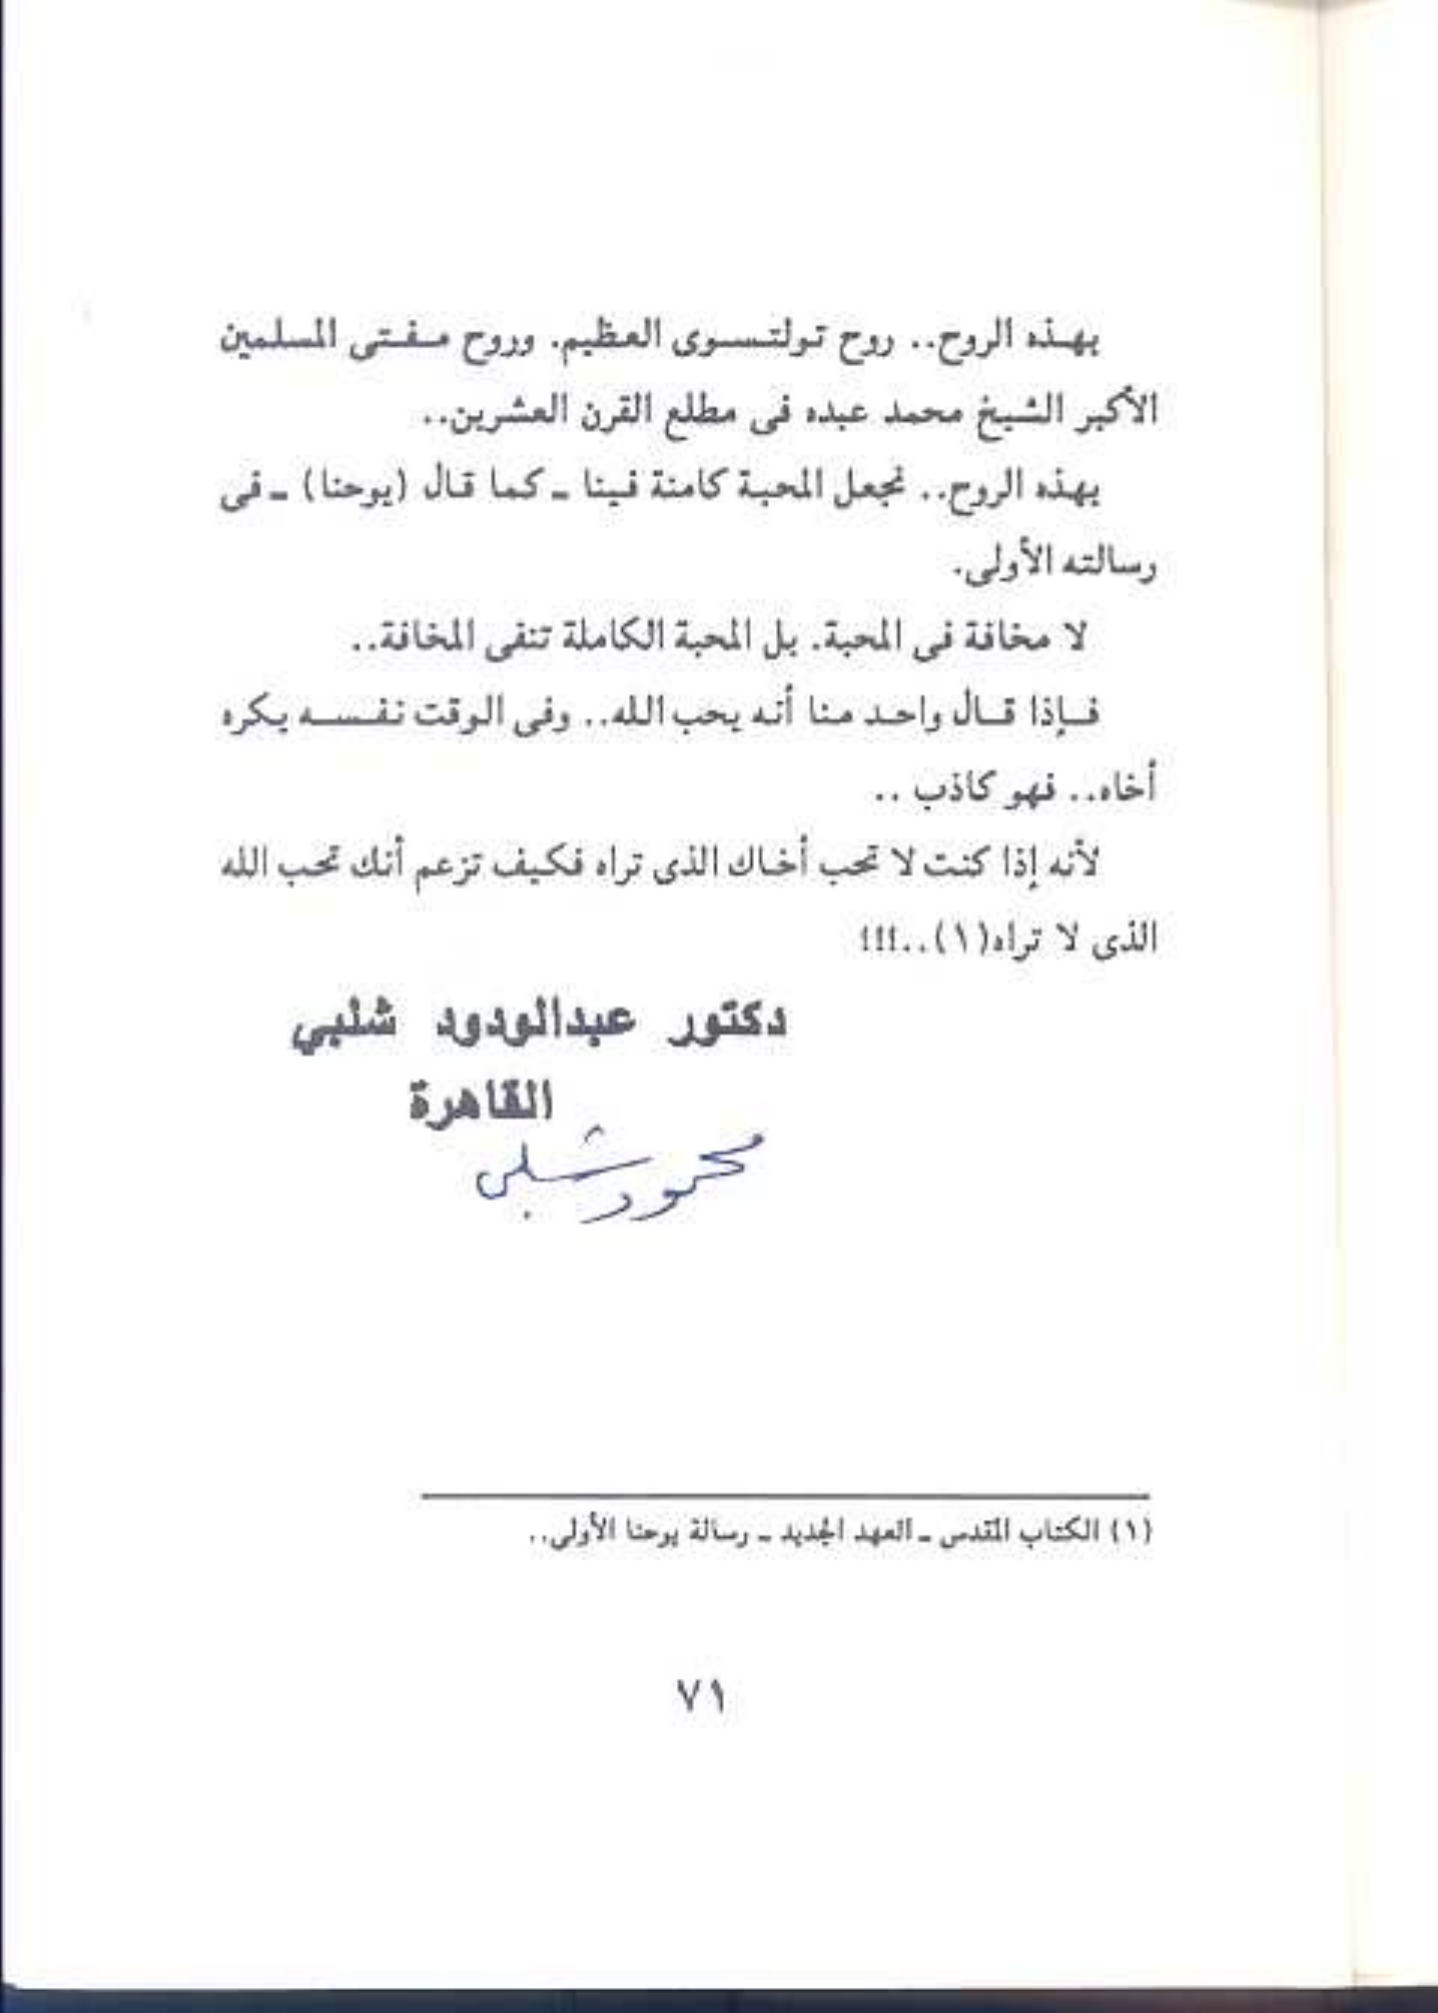 بهذه الروح.. روح تولتسوى العظيم. وروح مفتى المسلمين
الأكبر الشيخ محمد عبده فى مطلع القرن العشرين..
بهذه الروح.. نجعل المحبة كامنة فينا ـ كما قال (يوحنا) ـ فى
رسالته الأولى.
لا مخافة فى المحبة. بل المحبة الكاملة تنفى المخافة..
فإذا قال واحد منا أنه يحب الله.. وفى الوقت نفسه يكره
أخاه.. فهو كاذب ..
لأنه إذا كنت لا تحب أخاك الذى تراه فكيف تزعم أنك تحب الله
الذى لا تراه(١)..!!!
دكتور عبدالودود شلبي
القاهرة
محمود شلبى
(١) الكتاب المقدس ـ العهد الجديد ـ رسالة يوحنا الأولى..
٧١